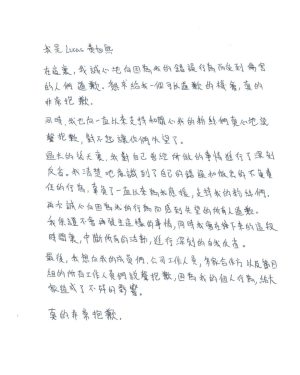 我是Lucas 黄旭熙
在这里，我诚心地向因為我的錯誤行為而受到傷害
的人們道歉。想求給我一個可以道歉的機會，真的
非常抱歉.
同時，我也向一直以來支持和關心我的粉絲們真心地說
聲抱歉，對不起讓你們失望了。
過去的幾天里，我對自己曾經所做的事情進行了深刻
反省。我清楚地意識到了自己的錯誤和做出的不負責
任的行為，辜負了一直以來為我應援，支持我的粉絲們.
再次誠心向因為我的行為而感到失望的所有人道歉。
我保證不會再發生這樣的事情，同時我會在接下来的這段
時間裏，中斷所有的活動，進行深刻的自我反省。
最後，我想向我的成員們，公司工作人員，各家合作方以及節目
組的所有工作人員們說聲抱歉，因為我的個人行為，給大
家造成了不好的影響。
真的非常抱歉.